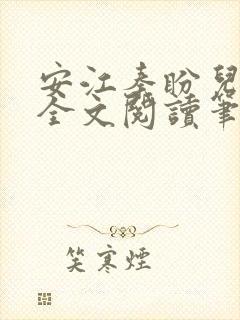 安江秦盼兒
全文閱讀筆
笑寒煙